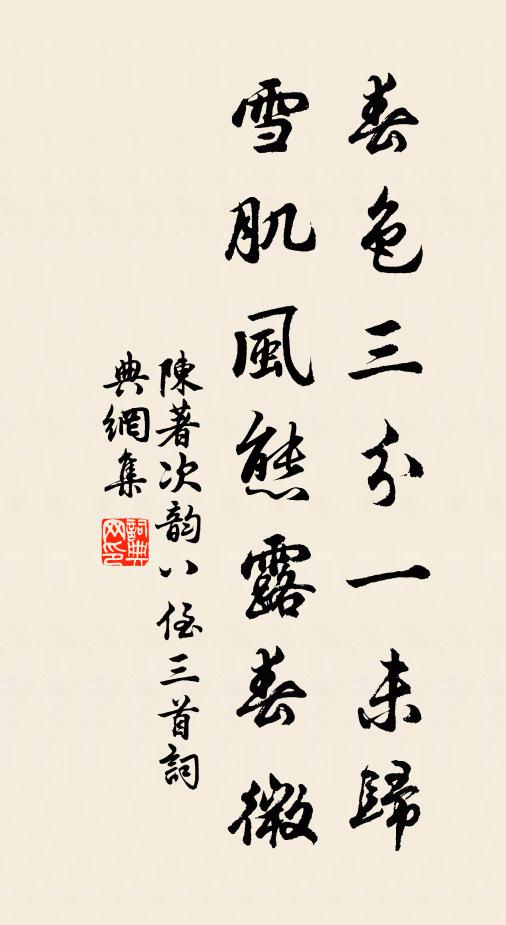 春色三分一未歸
雪肌風態露春微
陳著次韵八侄三首詞
典網集
詞典網印